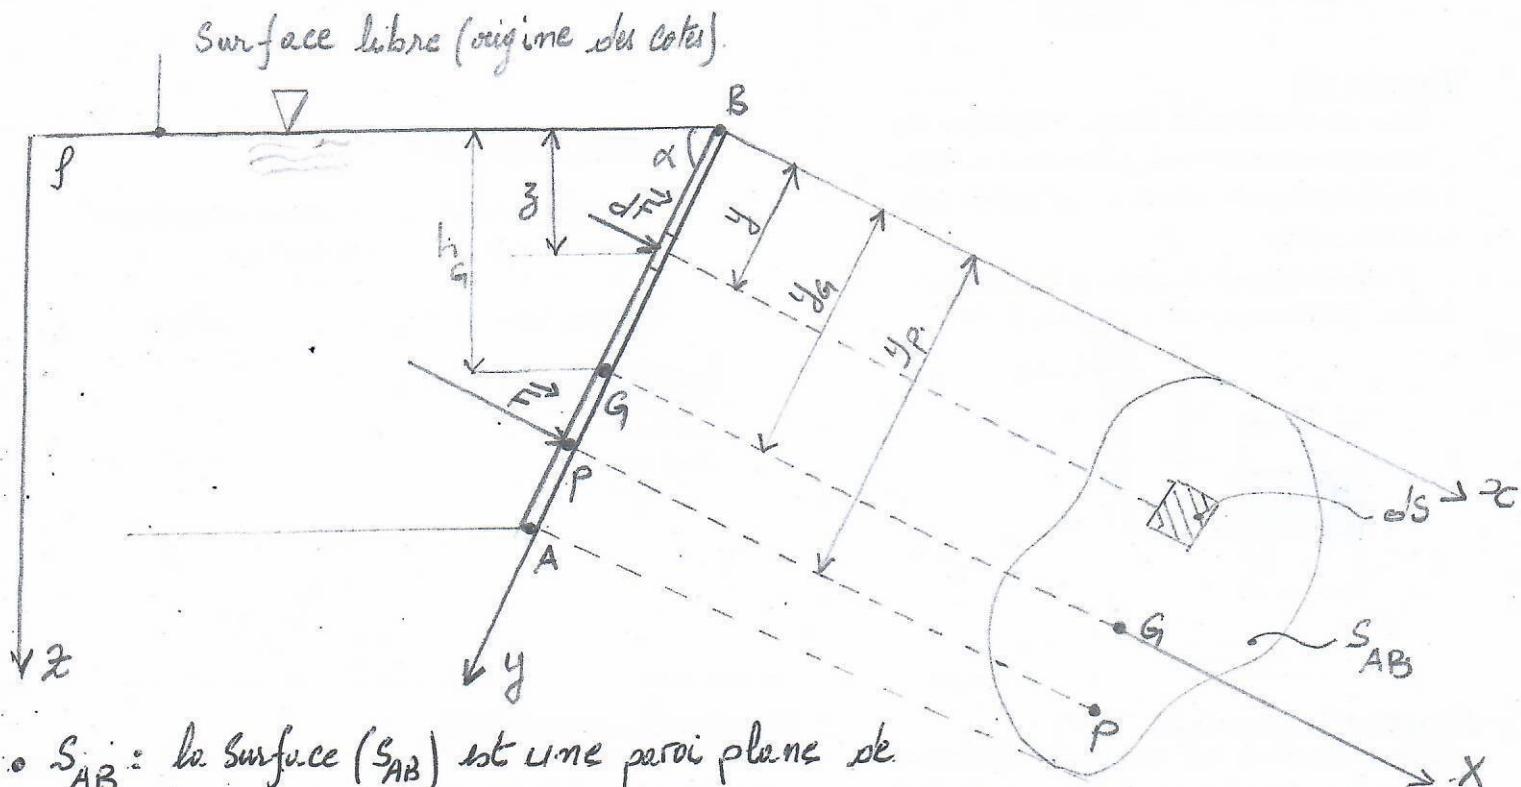 Surface libre (origine des cotes).
B
ρ
α
z
dF
h_G
y
y_G
y_P
F
G
P
A
x
dS
G
S_AB
P
z
y
X
• S_AB : la surface (S_AB) est une paroi plane de